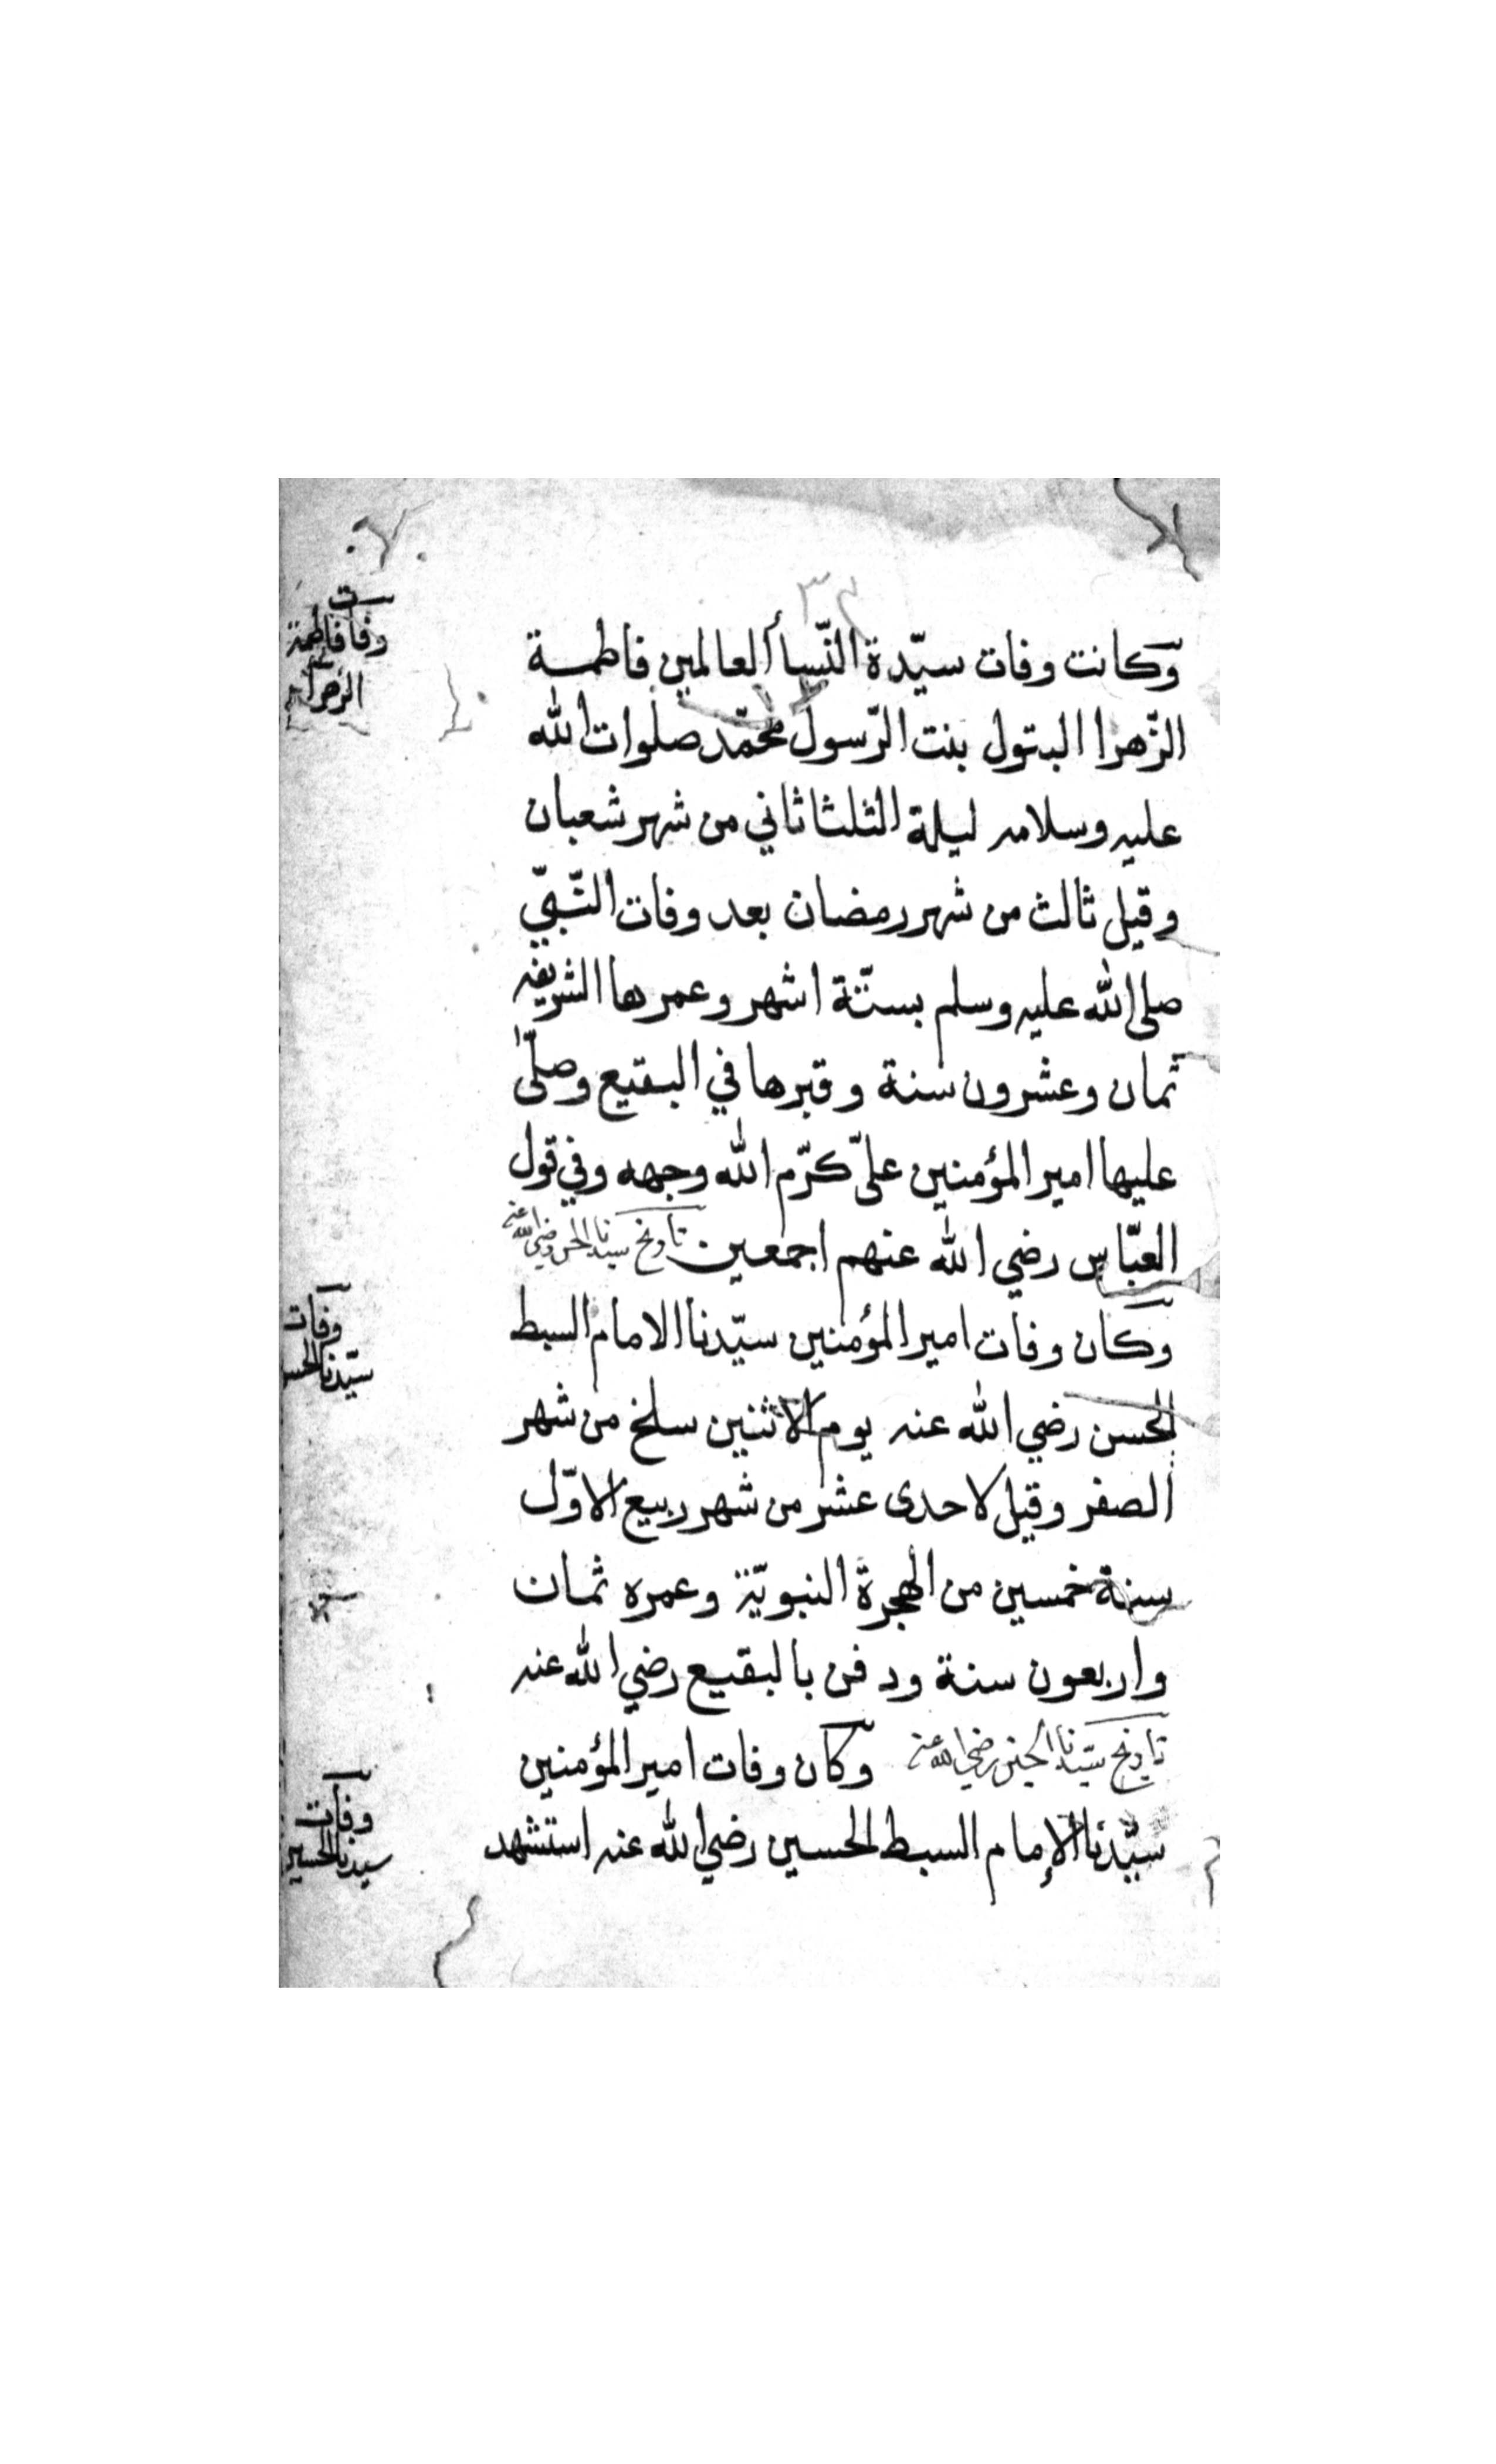 وكانت وفات سيّدة النّسأ العالمين فاطمـة
الزّهرا البتول بنت الرّسول محمّد صلوات الله
عليه وسلامه ليلة الثلثا ثاني من شهر شعبان
وقيل ثالث من شهر رمضان بعد وفات النّبيّ
صلى الله عليه وسلم بستّة اشهر وعمرها الشريفه
ثمان وعشرون سنة وقبرها في البقيع وصلّى
عليها امير المؤمنين عليّ كرّم الله وجهه وفي قول
العبّاس رضي الله عنهم اجمعين تاريخ سيدنا الحسن رضي الله عنه
وكان وفات امير المؤمنين سيّدنا الامام السبط
الحسن رضي الله عنه يوم الاثنين سلخ من شهر
الصفر وقيل لاحدى عشر من شهر ربيع الاوّل
سنة خمسين من الهجرة النبويّة وعمره ثمان
واربعون سنة ودفن بالبقيع رضي الله عنه
تاريخ سيّدنا الحسين رضي الله عنه وكان وفات امير المؤمنين
سيّدنا الإمام السبط الحسين رضي الله عنه استشهد
وفات فاطمة
الزهرا
وفات
سيّدنا الحسن
وفات
سيدنا الحسين